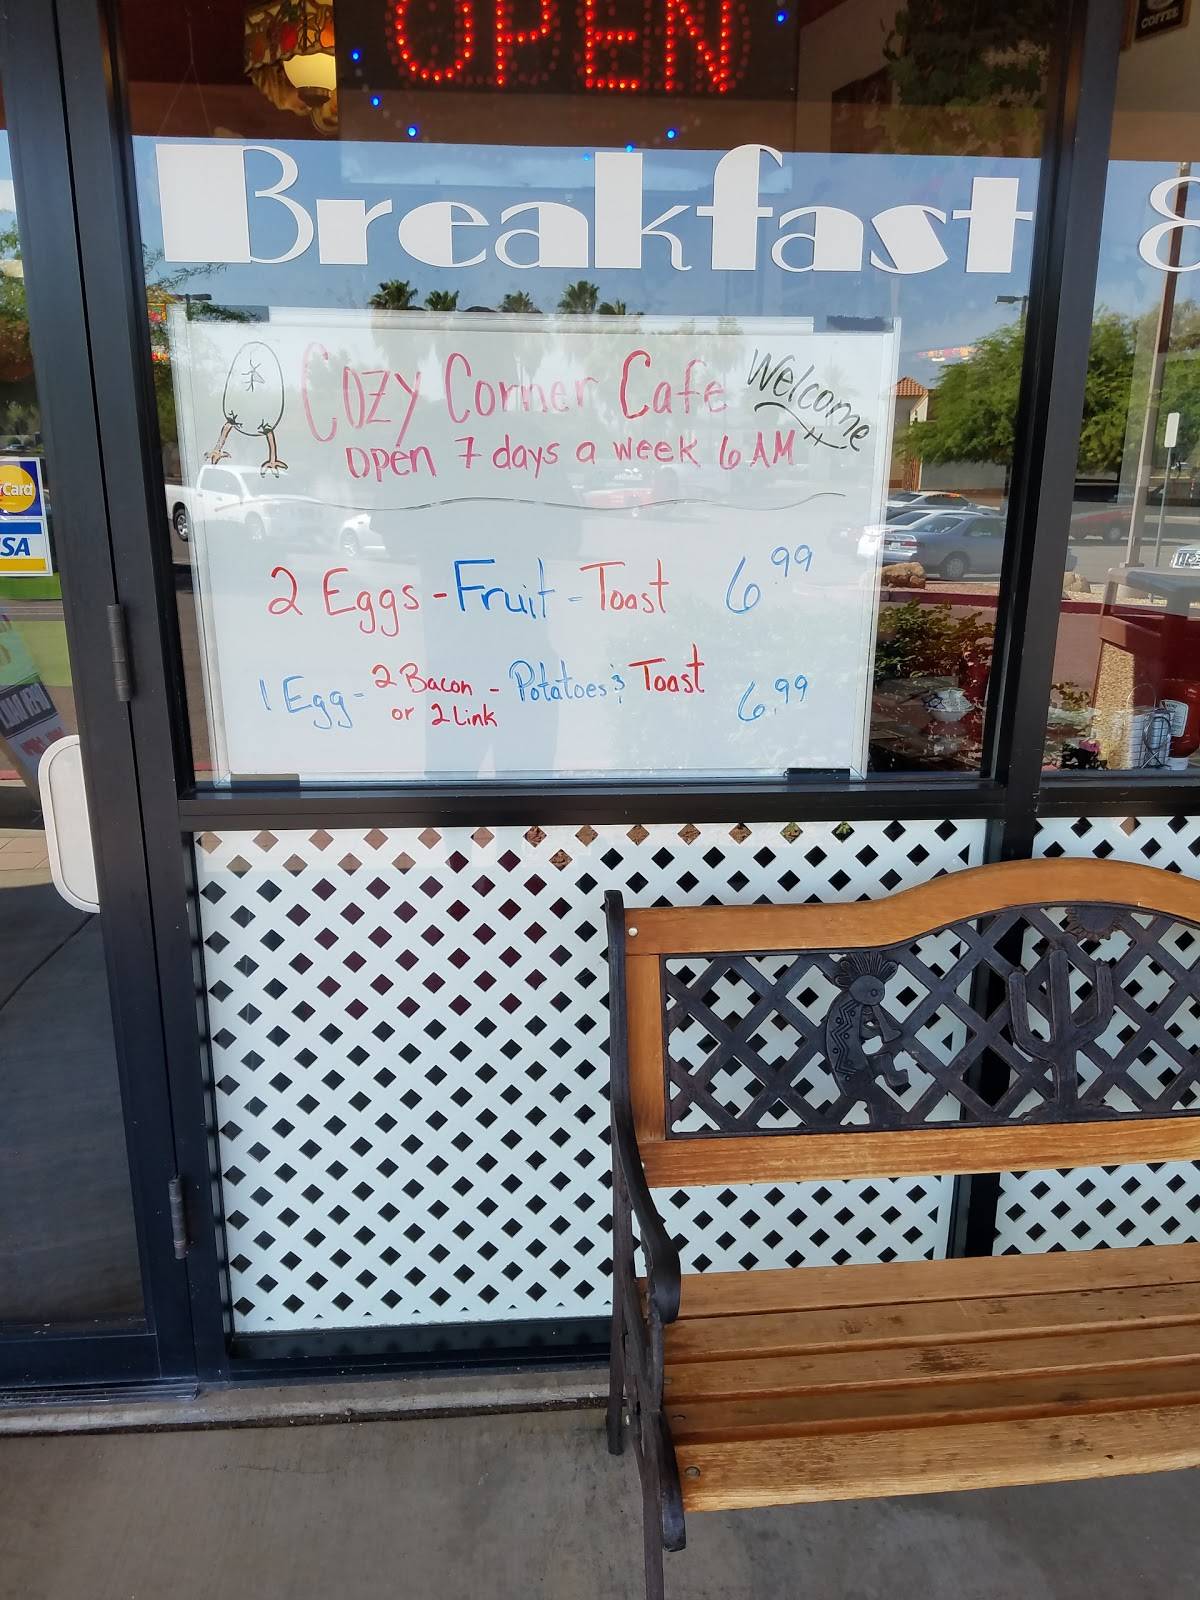 COFFEE
OPEN
Breakfast &
Cozy Corner Cafe Welcome
Open 7 days a week 6 AM
2 Eggs - Fruit - Toast 6.99
1 Egg - 2 Bacon - Potatoes & Toast 6.99
or 2 Link
rCard
ISA